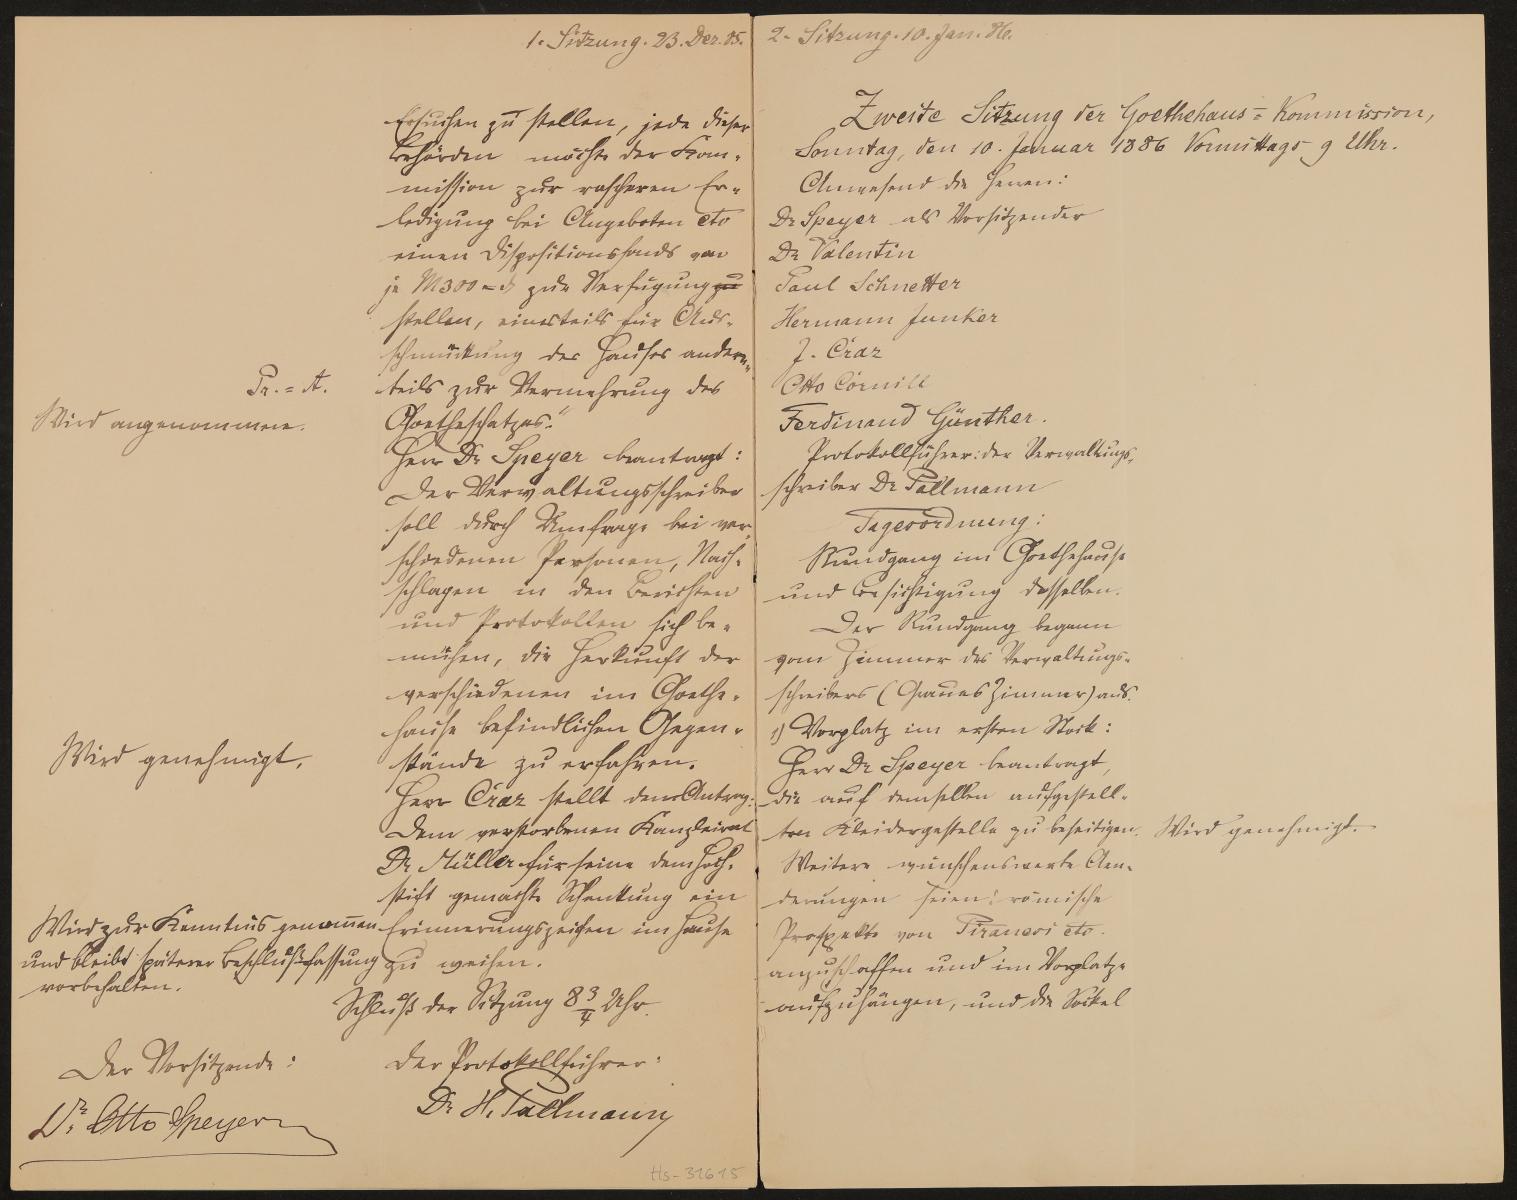 1. Sitzung. 23. Dez. 85.
Ersuchen zu stellen, jede dieser
Behörden möchte der Kom-
mission zur rascheren Er-
ledigung bei Angeboten etc
einen Dispositionsfonds von
je M 300 = zur Verfügung zu
stellen, einesteils für Aus-
schmückung des Hauses andern-
Pr. = A.
teils zur Vermehrung des
Wird angenommen.
Goetheschatzes."
Herr Dr Speyer beantragt:
Der Verwaltungsschreiber
soll durch Umfrage bei ver-
schiedenen Personen, Nach-
schlagen in den Berichten
und Protokollen sich be-
mühen, die Herkunft der
verschiedenen im Goethe-
hause befindlichen Gegen-
Wird genehmigt.
stände zu erfahren.
Herr Cräz stellt den Antrag:
Dem verstorbenen Kanzleirat
Dr Müller für seine dem Hoch-
stift gemachte Schenkung ein
Wird zur Kenntnis genom̄en
Erinnerungszeichen im Hause
und bleibt späterer Beschlußfassung
zu weihen.
vorbehalten.
Schluß der Sitzung 8 3/4 Uhr.
Der Vorsitzende:
Der Protokollführer:
Dr. Otto Speyer
Dr H. Pallmann
Hs-31615
2. Sitzung. 10. Jan. 86.
Zweite Sitzung der Goethehaus = Kommission,
Sonntag, den 10. Januar 1886 Vormittags 9 Uhr.
Anwesend die Herren:
Dr Speyer als Vorsitzender
Dr Valentin
Paul Schnetter
Hermann Junker
J. Cräz
Otto Cornill
Ferdinand Günther.
Protokollführer: der Verwaltungs-
schreiber Dr Pallmann
Tagesordnung:
Rundgang im Goethehause
und Besichtigung desselben.
Der Rundgang begann
vom Zimmer des Verwaltungs-
schreibers (Graues Zimmer) aus.
1) Vorplatz im ersten Stock:
Herr Dr Speyer beantragt,
die auf demselben aufgestell-
ten Kleidergestelle zu beseitigen.
Wird genehmigt.
Weitere wünschenswerte Aen-
derungen seien: römische
Prospekte von Piranesi etc.
anzuschaffen und im Vorplatze
aufzuhängen, und die Sockel